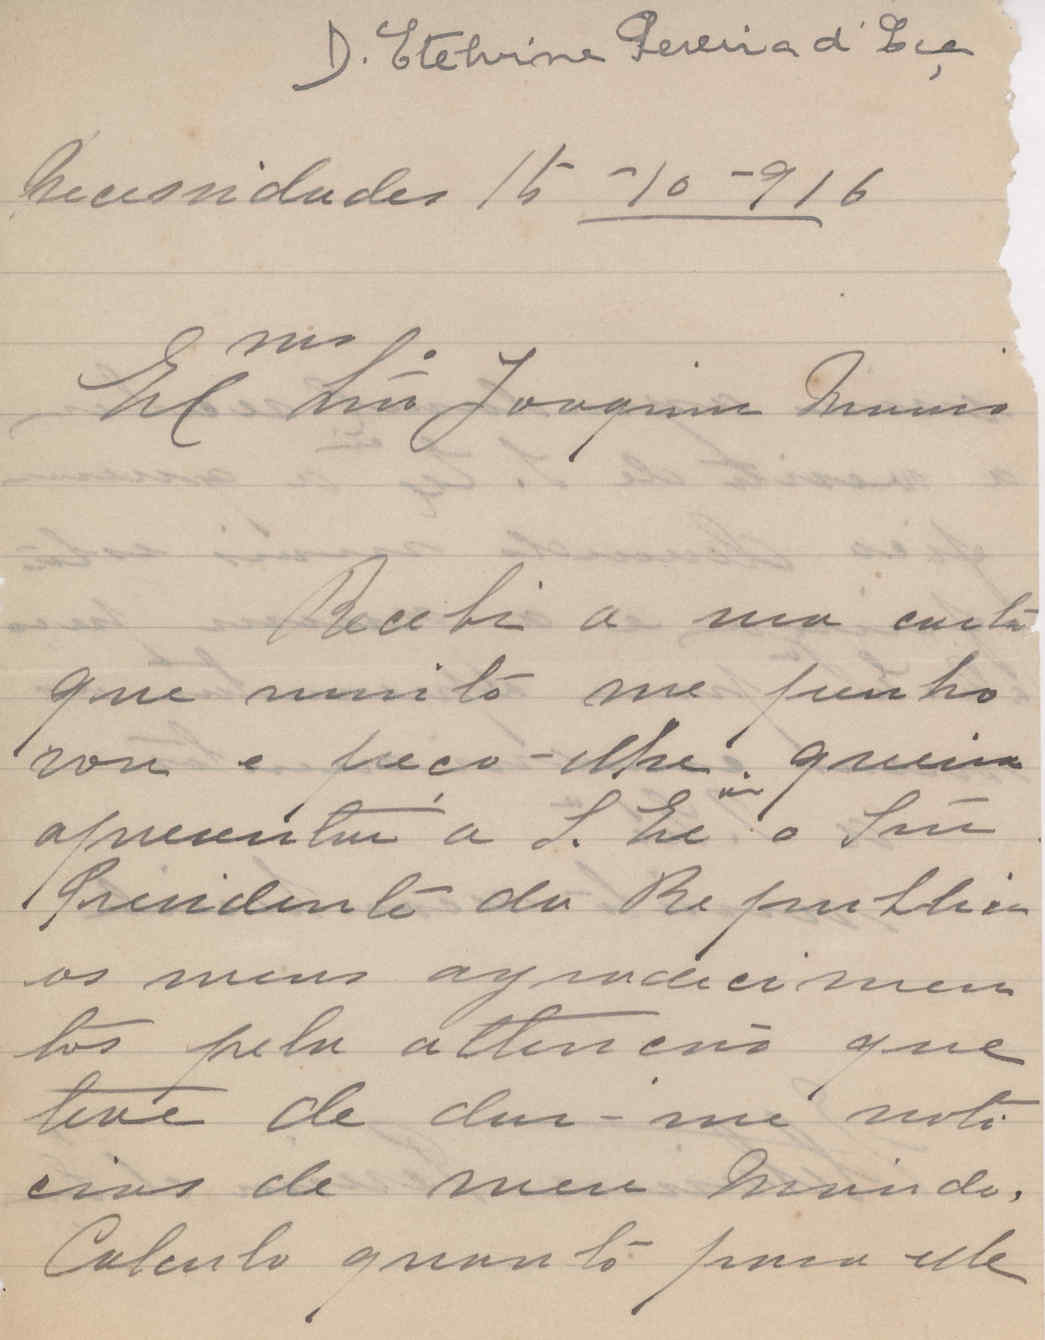 D. Etelvina Pereira d'Eça
Necessidades 15-10-916
Exmo Snr. Joaquim Nunes
Recebi a sua carta
que muito me penho
rou e peço-lhe queira
apresentar a S. Exª o Snr.
Presidente da Republica
os meus agradecimen
tos pela attenção que
teve de dar-me noti
cias de meu Marido.
Calculo quanto para elle